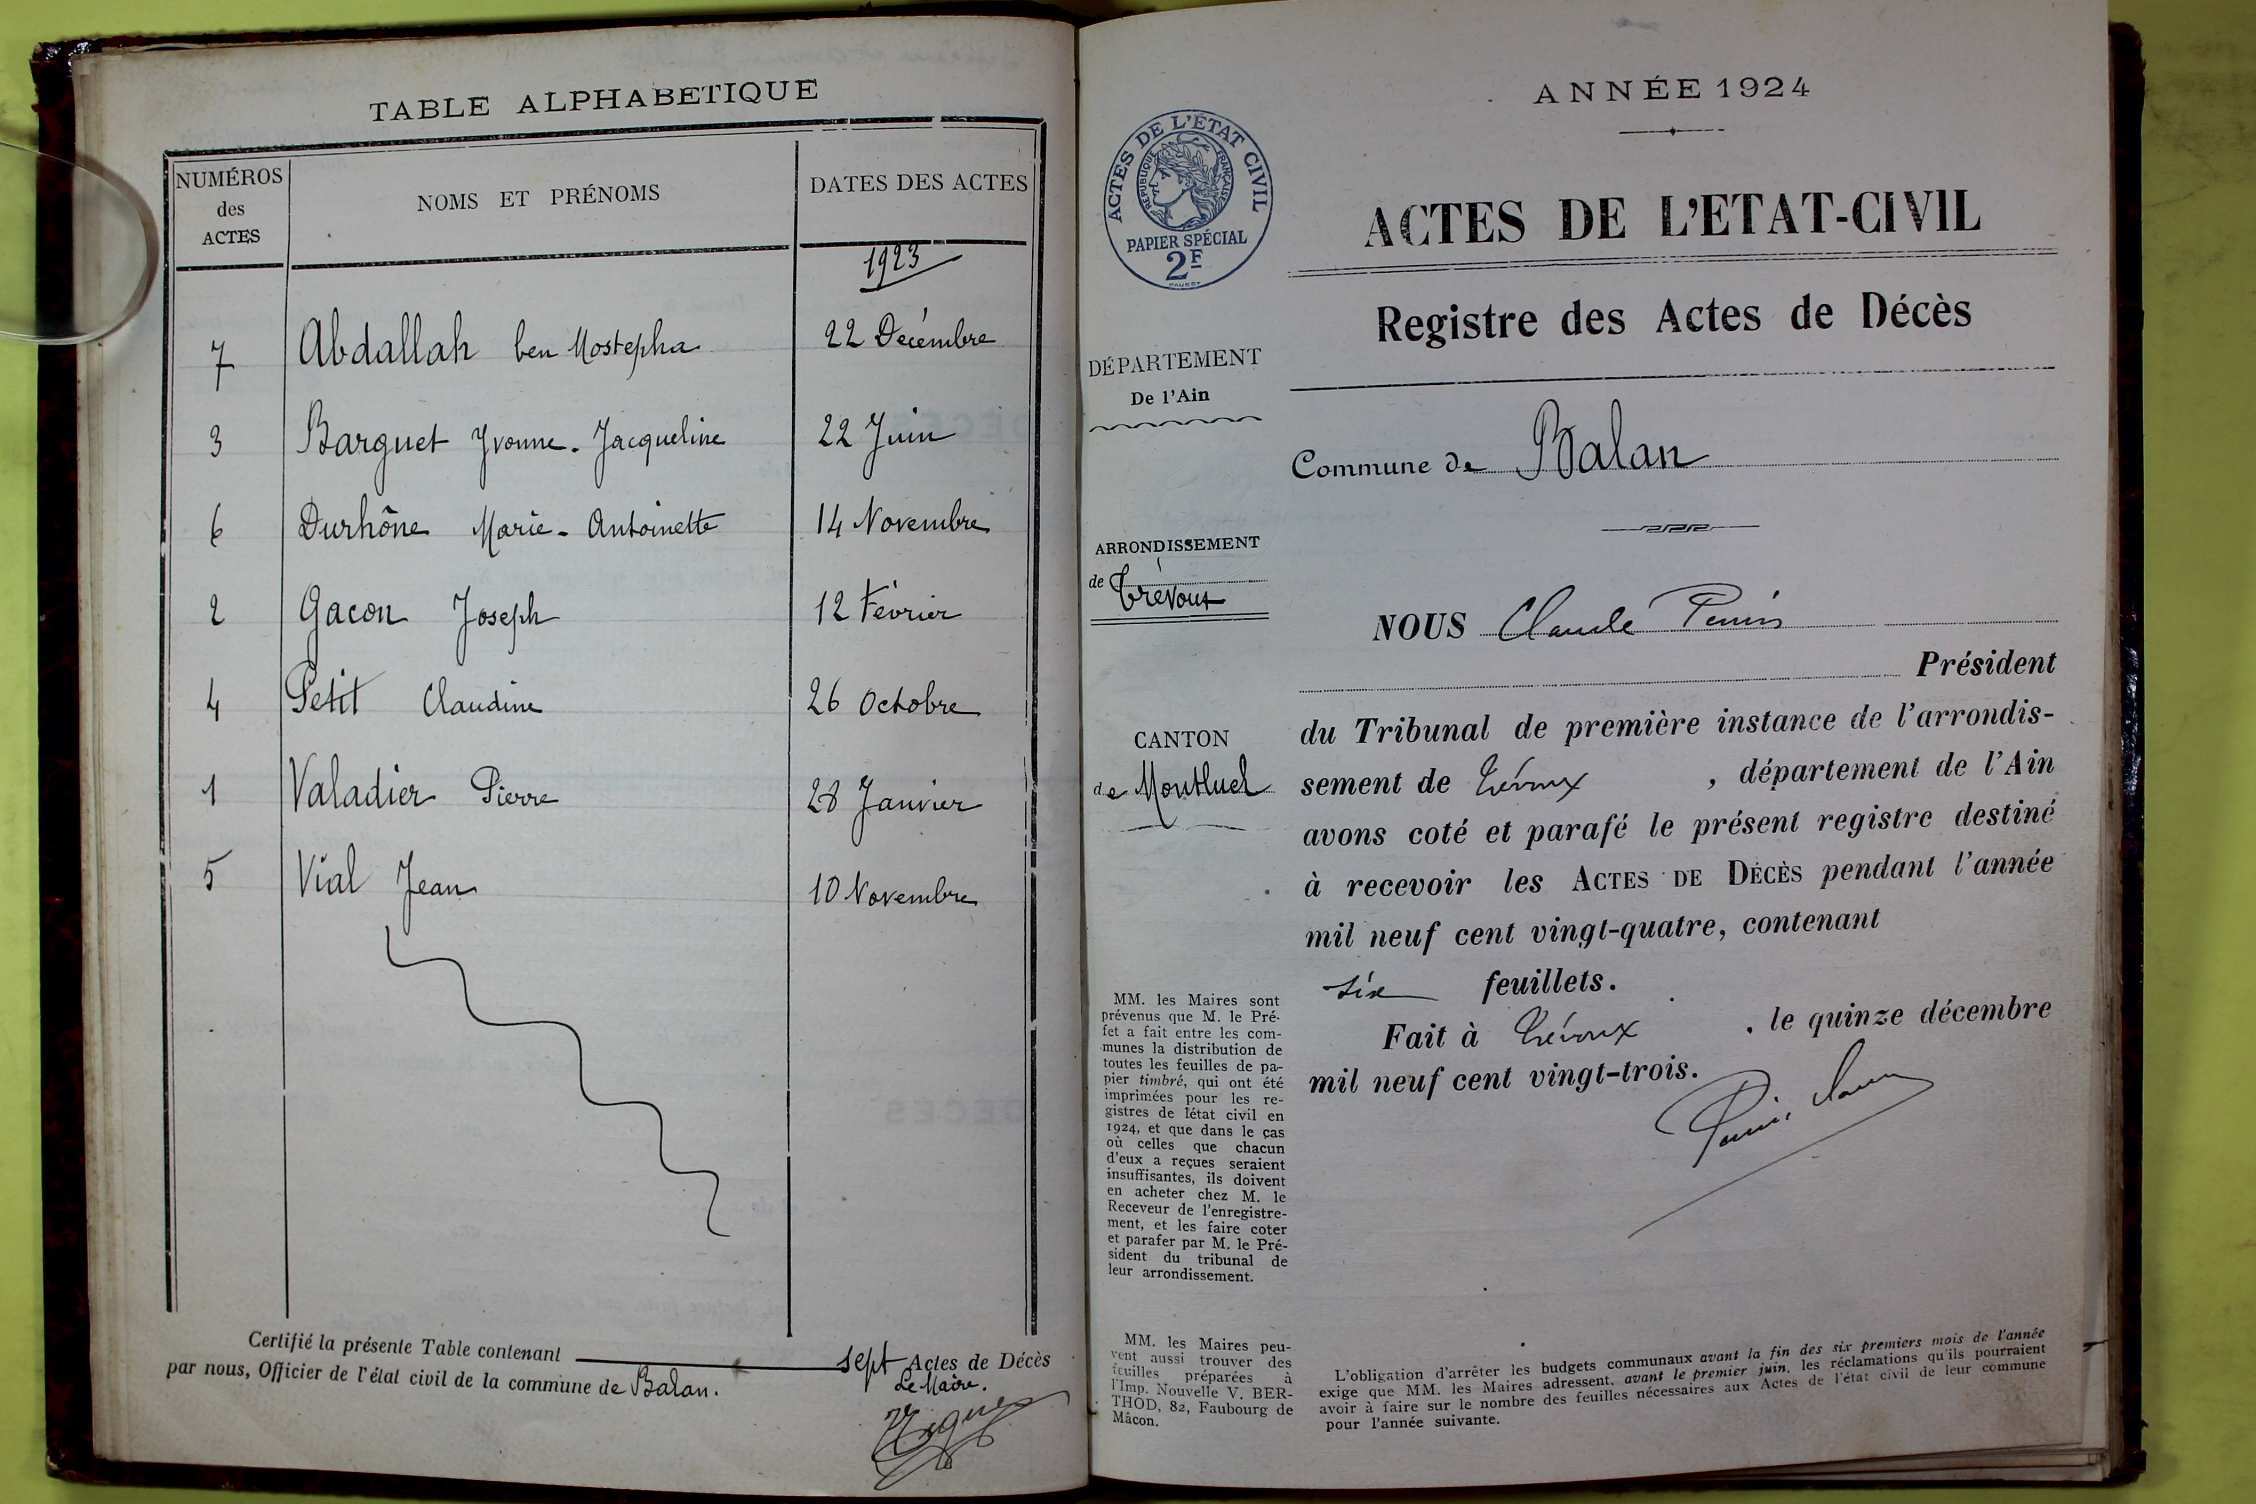 TABLE ALPHABETIQUE
NUMÉROS
des
ACTES
NOMS ET PRÉNOMS
DATES DES ACTES
1923
7 Abdallah ben Mostepha 22 Décembre
3 Barguet Yvonne. Jacqueline 22 Juin
6 Durhône Marie-Antoinette 14 Novembre
2 Gacon Joseph 12 Février
4 Petit Claudine 26 Octobre
1 Valadier Pierre 28 Janvier
5 Vial Jean 10 Novembre
Certifié la présente Table contenant sept Actes de Décès
par nous, Officier de l'état civil de la commune de Balan.
Le Maire.
ANNÉE 1924
ACTES DE L'ÉTAT CIVIL
RÉPUBLIQUE FRANÇAISE
PAPIER SPÉCIAL
2F
ACTES DE L'ETAT-CIVIL
Registre des Actes de Décès
DÉPARTEMENT
De l'Ain
Commune de Balan
ARRONDISSEMENT
de Trévoux
CANTON
de Montluel
NOUS Claude
Président
du Tribunal de première instance de l'arrondis-
sement de Trévoux, département de l'Ain
avons coté et parafé le présent registre destiné
à recevoir les ACTES DE DÉCÈS pendant l'année
mil neuf cent vingt-quatre, contenant
six feuillets.
Fait à Trévoux, le quinze décembre
mil neuf cent vingt-trois.
MM. les Maires sont
prévenus que M. le Pré-
fet a fait entre les com-
munes la distribution de
toutes les feuilles de pa-
pier timbré, qui ont été
imprimées pour les re-
gistres de l'état civil en
1924, et que dans le cas
où celles que chacun
d'eux a reçues seraient
insuffisantes, ils doivent
en acheter chez M. le
Receveur de l'enregistre-
ment, et les faire coter
et parafer par M. le Pré-
sident du tribunal de
leur arrondissement.
MM. les Maires peu-
vent aussi trouver des
feuilles préparées à
l'Imp. Nouvelle V. BER-
THOD, 82, Faubourg de
Mâcon.
L'obligation d'arrêter les budgets communaux avant la fin des six premiers mois de l'année
exige que MM. les Maires adressent, avant le premier juin, les réclamations qu'ils pourraient
avoir à faire sur le nombre des feuilles nécessaires aux Actes de l'état civil de leur commune
pour l'année suivante.